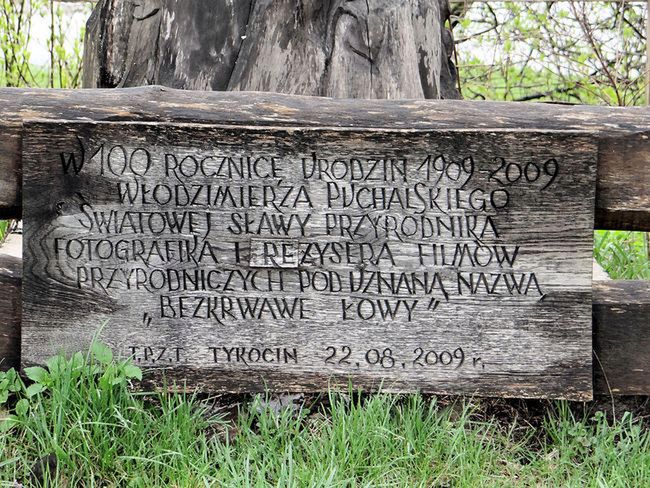 W 100 ROCZNICE URODZIN 1909-2009
WŁODZIMIERZA PUCHALSKIEGO
ŚWIATOWEJ SŁAWY PRZYRODNIKA
FOTOGRAFIKA I REŻYSERA FILMÓW
PRZYRODNICZYCH POD UZNANĄ NAZWĄ
„BEZKRWAWE ŁOWY"
T.P.Z.T. TYKOCIN 22.08.2009 r.